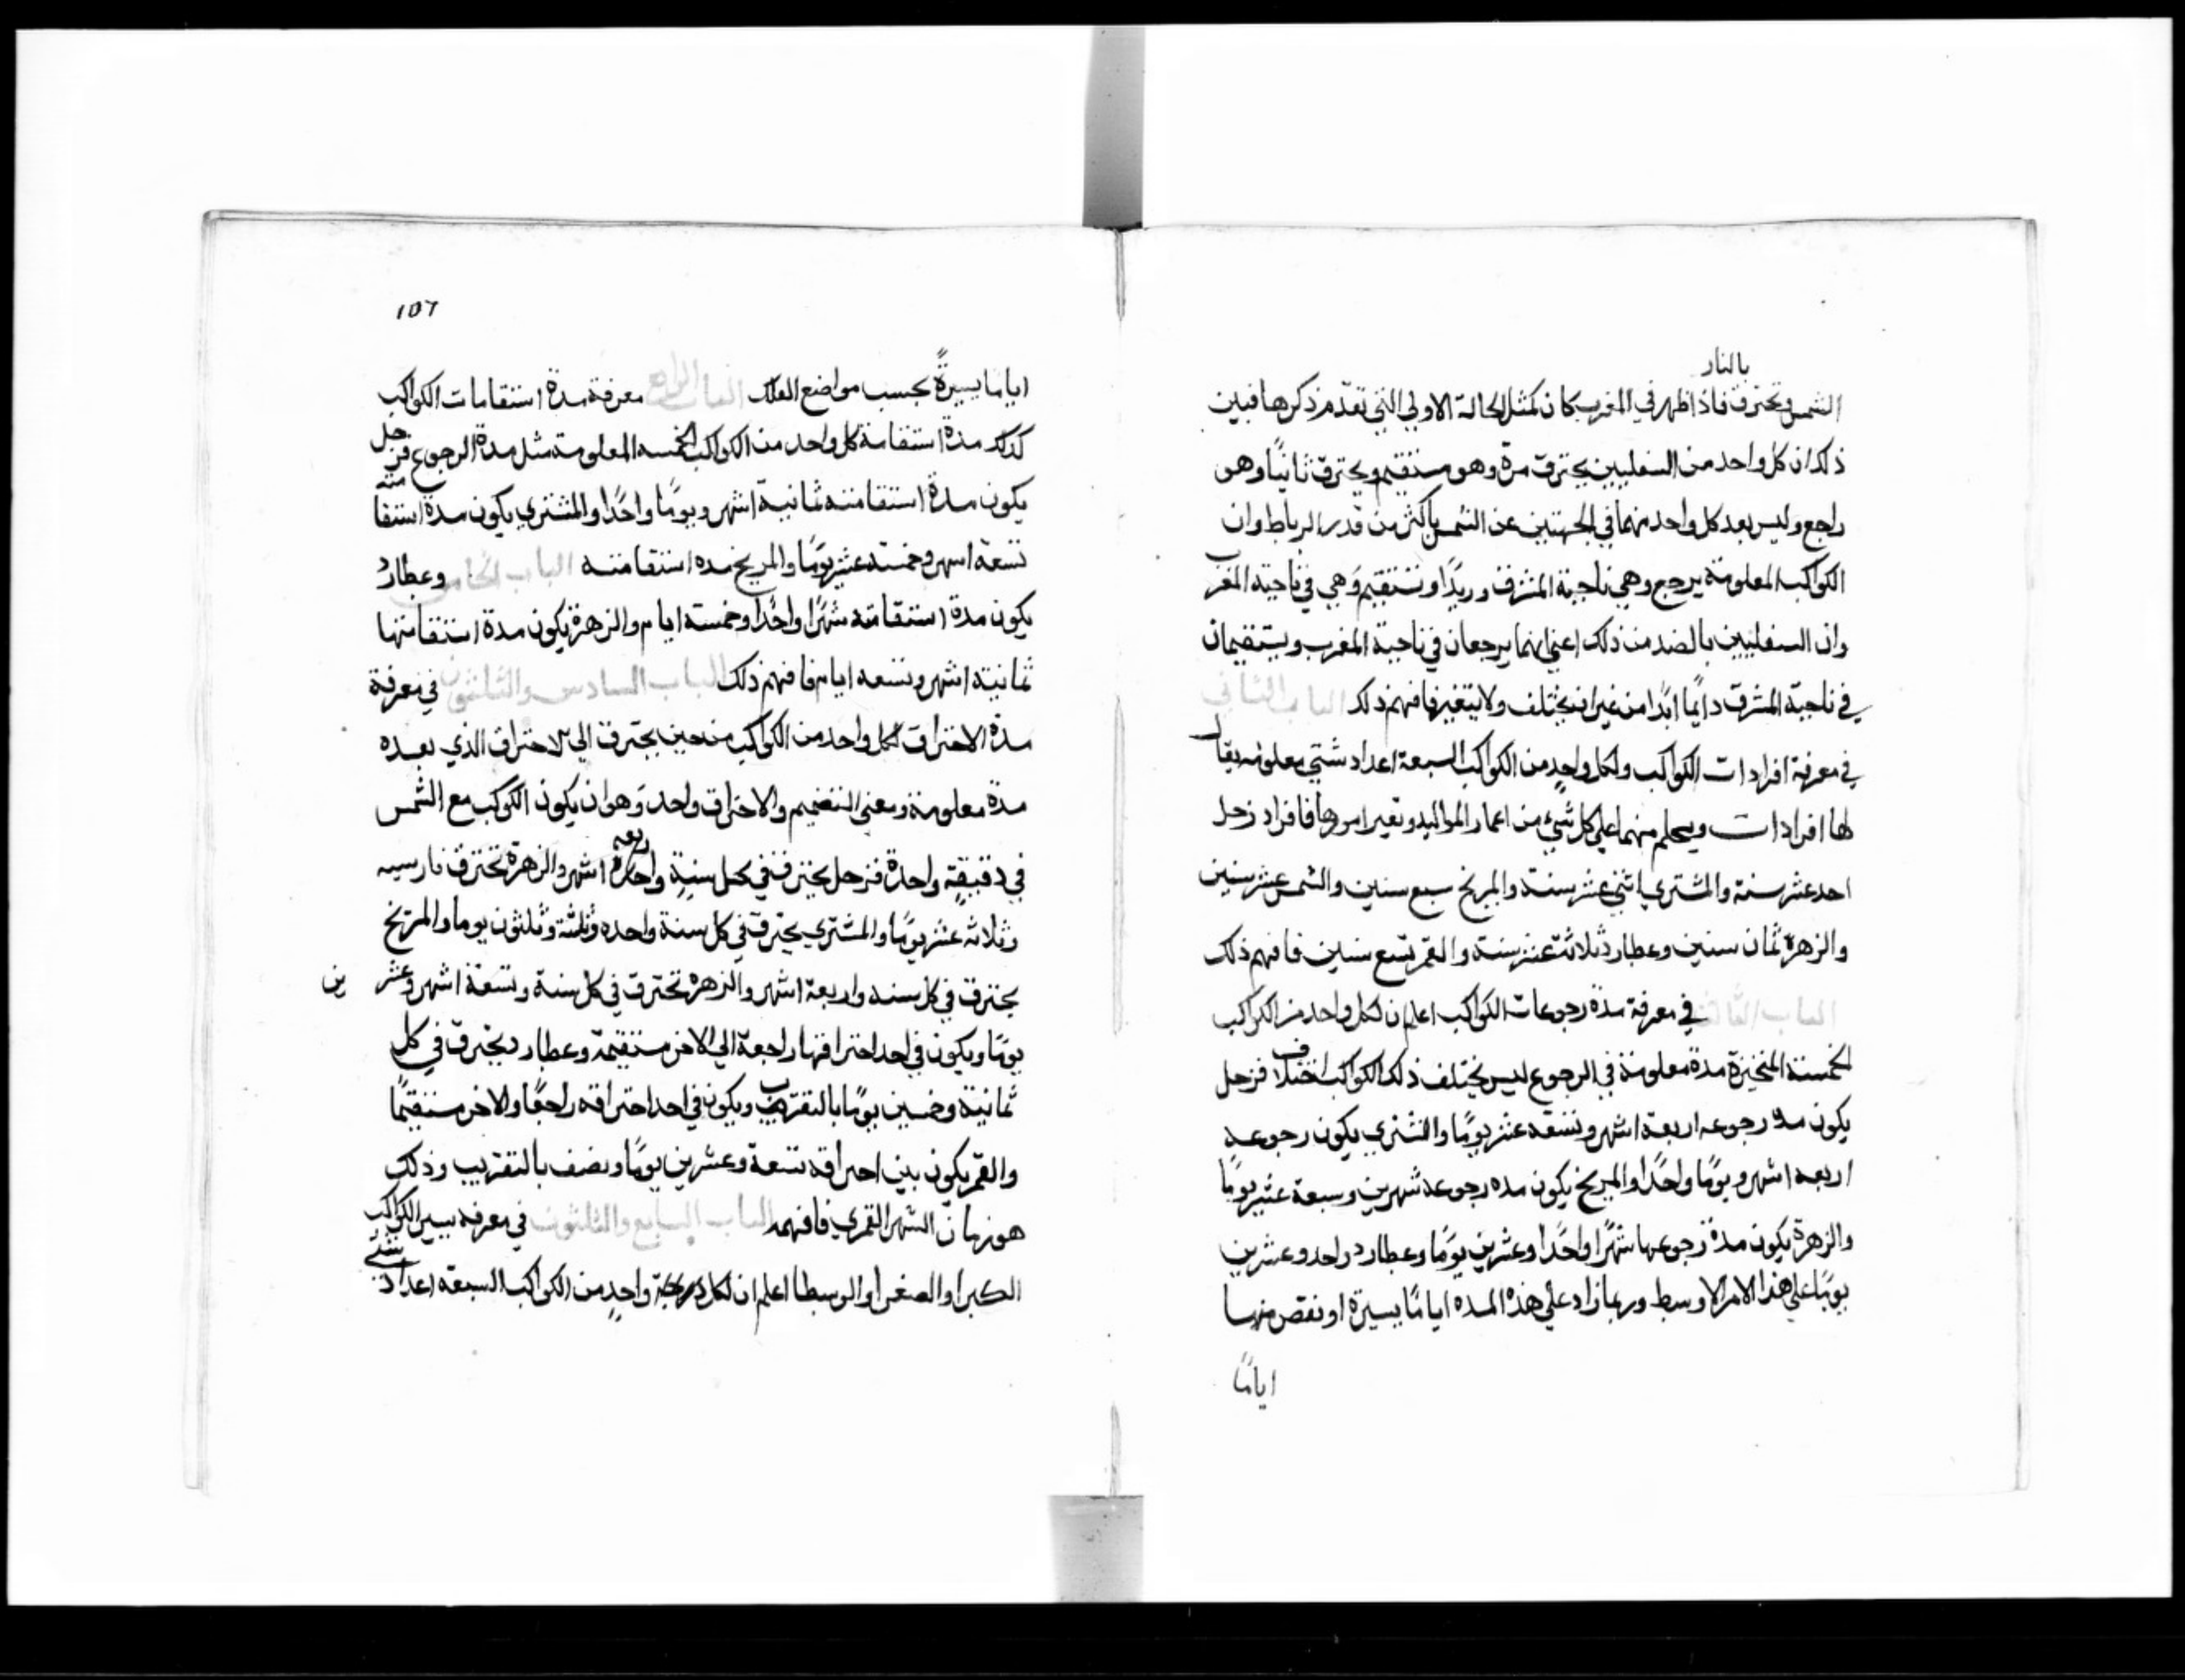 بالنار
الشمس وتحترق فاذا ظهر في المغرب كان كمثل الحالة الاولي التي تقدّم ذكرها فبين
ذلك ان كل واحد من السفليين يحترق مرة وهو مستقيم ويحترق ثانيًا وهو
راجع وليس بعد كل واحد منهما في الجهتين عن الشمس باكثر من قدر الرباط وان
الكواكب المعلومة يرجع وهي ناحية المشرق وتستقيم وهي في ناحية المغرب
وان السفليين بالضد من ذلك اعني انهما يرجعان في ناحية المغرب ويستقيمان
في ناحية المشرق دايمًا ابدًا من غير ان يختلف ولا يتغير فافهم ذلك الباب الثاني
في معرفة افرادات الكواكب ولكل واحدٍ من الكواكب السبعة اعداد شتي معلومه يقال
لها افرادات ويحلم منهما علي كل شيء من اعمار المواليد وتغير امورها فافراد زحل
احد عشر سنة والمشتري اثني عشر سنة والمريخ سبع سنين والشمس عشر سنين
والزهرة ثمان سنين وعطارد ثلاثة عشر سنة والقمر تسع سنين فافهم ذلك
الباب الثالث في معرفة مدة رجوعات الكواكب اعلم ان لكل واحد من الكواكب
الخمسة المتحيزة مدة معلومة في الرجوع ليس يختلف ذلك الكواكب اختلاف فزحل
يكون مدة رجوعه اربعة اشهر وتسعة عشر يومًا والمشتري يكون رجوعه
اربعه اشهر ويومًا واحدًا والمريخ يكون مده رجوعه شهرين وسبعة عشر يومًا
والزهرة يكون مدة رجوعها شهرًا واحدًا وعشرين يومًا وعطارد واحد وعشرين
يومًا علي هذا الامر الاوسط وربما زاد علي هذه المده ايامًا يسيرة او نقص منها
ايامًا
١٥٦
اياما يسيرةً بحسب مواضع الفلك الباب الرابع معرفة مدة استقامات الكواكب
كذلك مدة استقامة كل واحد من الكواكب الخمسه المعلومة مثل مدة الرجوع فزحل
يكون مدة استقامته ثمانية اشهر ويومًا واحدًا والمشتري يكون مدة استقامته
تسعة اسهر وخمسة عشر يومًا والمريخ مده استقامته الباب الخامس وعطارد
يكون مدة استقامته شهرًا واحدًا وخمسة ايام والزهرة يكون مدة استقامتها
ثمانية اشهر وتسعه ايام فافهم ذلك الباب السادس والثلثون في معرفة
مدة الاحتراق لكل واحد من الكواكب من حين يحترق الي الاحتراق الذي بعده
مدة معلومة ومعني التضميم والاحتراق واحد وهو ان يكون الكوكب مع الشمس
في دقيقةٍ واحدة فزحل يحترق في كل سنةٍ واربعه اشهر والزهرة تحترق
وثلاثه عشر يومًا والمشتري يحترق في كل سنة واحده وثلثة وثلثون يوما والمريخ
يحترق في كل سنه واربعة اشهر والزهره تحترق في كل سنة وتسعة اشهر وعشرين
يومًا ويكون في احد احتراقها راجعة الي الاخر مستقيمة وعطارد يحترق في كل
ثمانية وخمسين يومًا بالتقريب ويكون في احد احتراقه راجعًا والاخر مستقيمًا
والقمر يكون بين احتراقه تسعة وعشرين يومًا ونصف بالتقريب وذلك
هو زمان الشهر القمري فافهمه الباب السابع والثلثون في معرفة سنين الكواكب
الكبرا والصغرا والوسطا اعلم ان لكل واحدٍ من الكواكب السبعة اعداد شتي